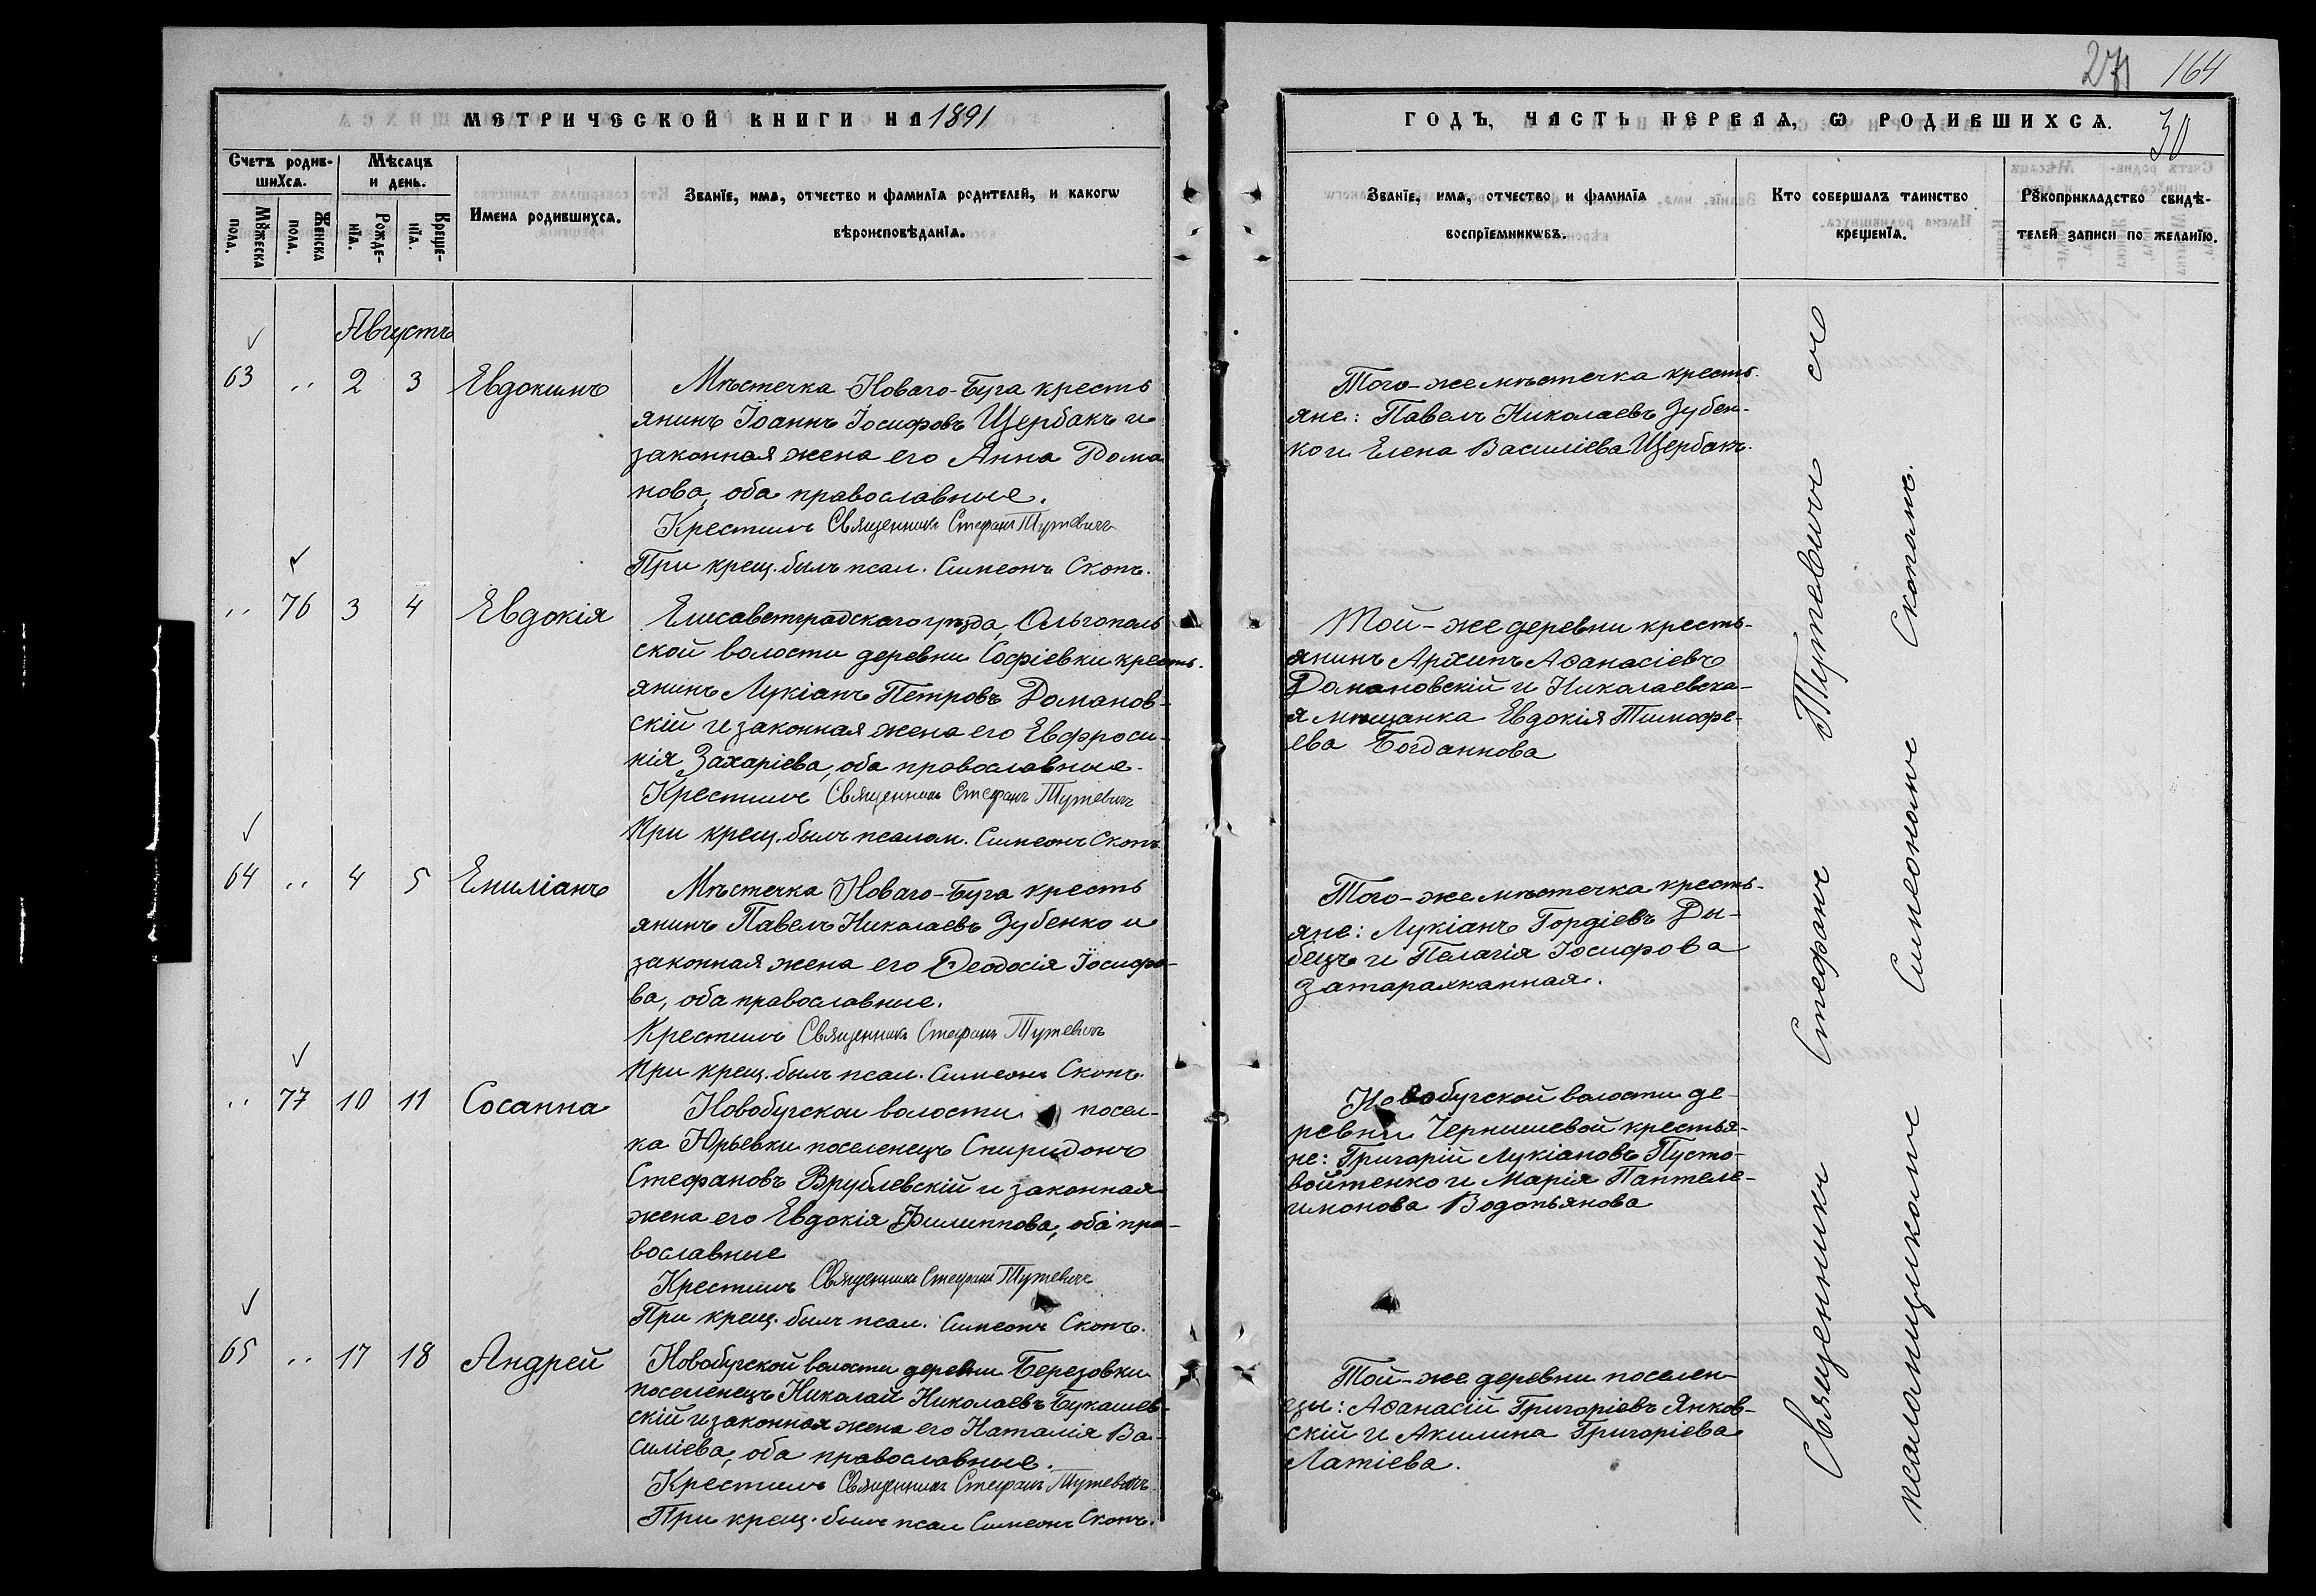 МЕТРИЧЕСКОЙ КНИГИ НА 1891
Счетъ родив-
шихсѧ.
Мѣсѧцъ
и день.
Мꙋжеска
пола.
Женска
пола.
Рожде-
нїѧ.
Креще-
нїѧ.
Имена родившихсѧ.
Званїе, имѧ, отчество и фамилїѧ родителей, и какогѡ
вѣроисповѣданїѧ.
Августъ
63 " 2 3 Евдокимъ
Мѣстечка Новаго-Буга кресть
янинъ Іоаннъ Іосифовъ Щербакъ и
законная жена его Анна Рома
нова, оба православные.
Крестилъ Священникъ Стефанъ Тутевичъ
При крещ. былъ псал. Симеонъ Скопъ.
" 76 3 4 Евдокія
Елисаветградскаго уѣзда, Ольгополь
ской волости деревни Софіевки кресть.
янинъ Лукіанъ Петровъ Романов-
скій и законная жена его Евфроси-
нія Захаріева, оба православные.
Крестилъ Священникъ Стефанъ Тутевичъ
При крещ. былъ псалом. Симеонъ Скопъ
64 " 4 5 Емиліанъ
Мѣстечка Новаго-Буга кресть
янинъ Павелъ Николаевъ Зубенко и
законная жена его Ѳеодосія Іосифо-
ва, оба православные.
Крестилъ Священникъ Стефанъ Тутевичъ
При крещ. былъ псал. Симеонъ Скопъ.
" 77 10 11 Сосанна
Новобугской волости посел-
ка Юрьевки поселенецъ Спиридонъ
Стефановъ Врублевскій и законная
жена его Евдокія Филиппова, оба пра-
вославные
Крестилъ Священникъ Стефанъ Тутевичъ
При крещ. былъ псал. Симеонъ Скопъ.
65 " 17 18 Андрей
Новобугской волости деревни Березовки
поселенецъ Николай Николаевъ Букашев-
скій и законная жена его Наталія Ва-
силіева, оба православные.
Крестилъ Священникъ Стефанъ Тутевичъ
При крещ. былъ псал Симеонъ Скопъ.
271 164
ГОДЪ, ЧАСТЬ ПЕРВАѦ, Ѡ РОДИВШИХСѦ.
30
Званїе, имѧ, отчество и фамилїѧ
воспрїемникѡвъ.
Кто совершалъ таинство
крещенїѧ.
Рꙋкоприкладство свидѣ-
телей записи по желанїю.
Того-же мѣстечка кресть.
яне: Павелъ Николаевъ Зубен-
ко и Елена Василіева Щербакъ.
Той-же деревни кресть-
янинъ Архипъ Аѳанасіевъ
Романовскій и Николаевска-
я мѣщанка Евдокія Тимофе-
ева Богданнова
Того-же мѣстечка кресть-
яне: Лукіанъ Гордіевъ Ры-
бецъ и Пелагія Іосифова
Затараканная.
Новобугской волости де-
ревни Чернышевой крестья-
не: Григорій Лукіановъ Пусто-
войтенко и Марія Пантеле-
имонова Водопьянова
Той-же деревни поселен-
цы: Аѳанасій Григоріевъ Янков-
скій и Акилина Григоріева
Латіева.
Священникъ Стефанъ Тутевичъ съ
псаломщикомъ Симеономъ Скопомъ.